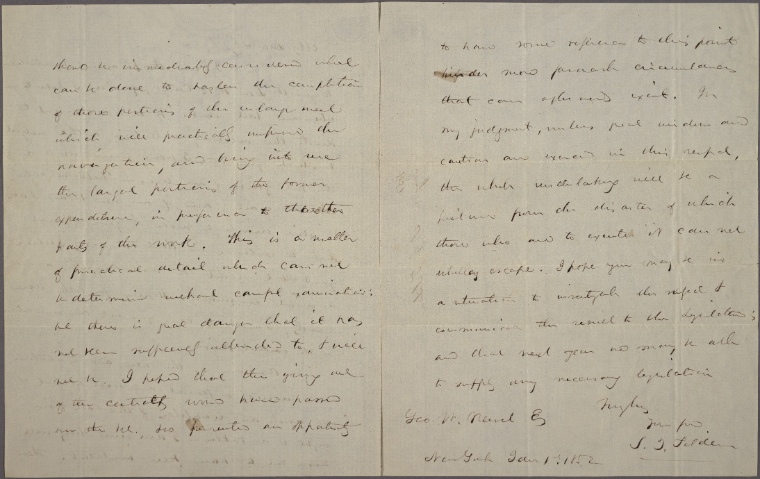 should be immediately concerned what
can be done to hasten the completion
of those portions of the enlargement
which will practically improve the
navigation, and bring into use
the largest portions of the former
expenditure, in preference to the other
parts of the work. This is a matter
of practical detail which can not
be determined without careful examination;
there is great danger that it has
not been sufficiently attended to, & will
not be. I hoped that the giving out
of the contracts would have passed
over the so as to an opportunity
to have some reference to this point
under more favorable circumstances
that can afterwards exist. In
my judgment, unless great wisdom and
caution are exercised in this respect,
the whole undertaking will be a
failure from the disaster of which
those who are to execute it can not
wholly escape. I hope you may be in
a situation to investigate this subject &
communicate the result to the Legislature;
and that next year we may be able
to supply any necessary legislation
Truly
Your friend
Geo W. Esq
S. J. Tilden
New York Jan 1st 1852